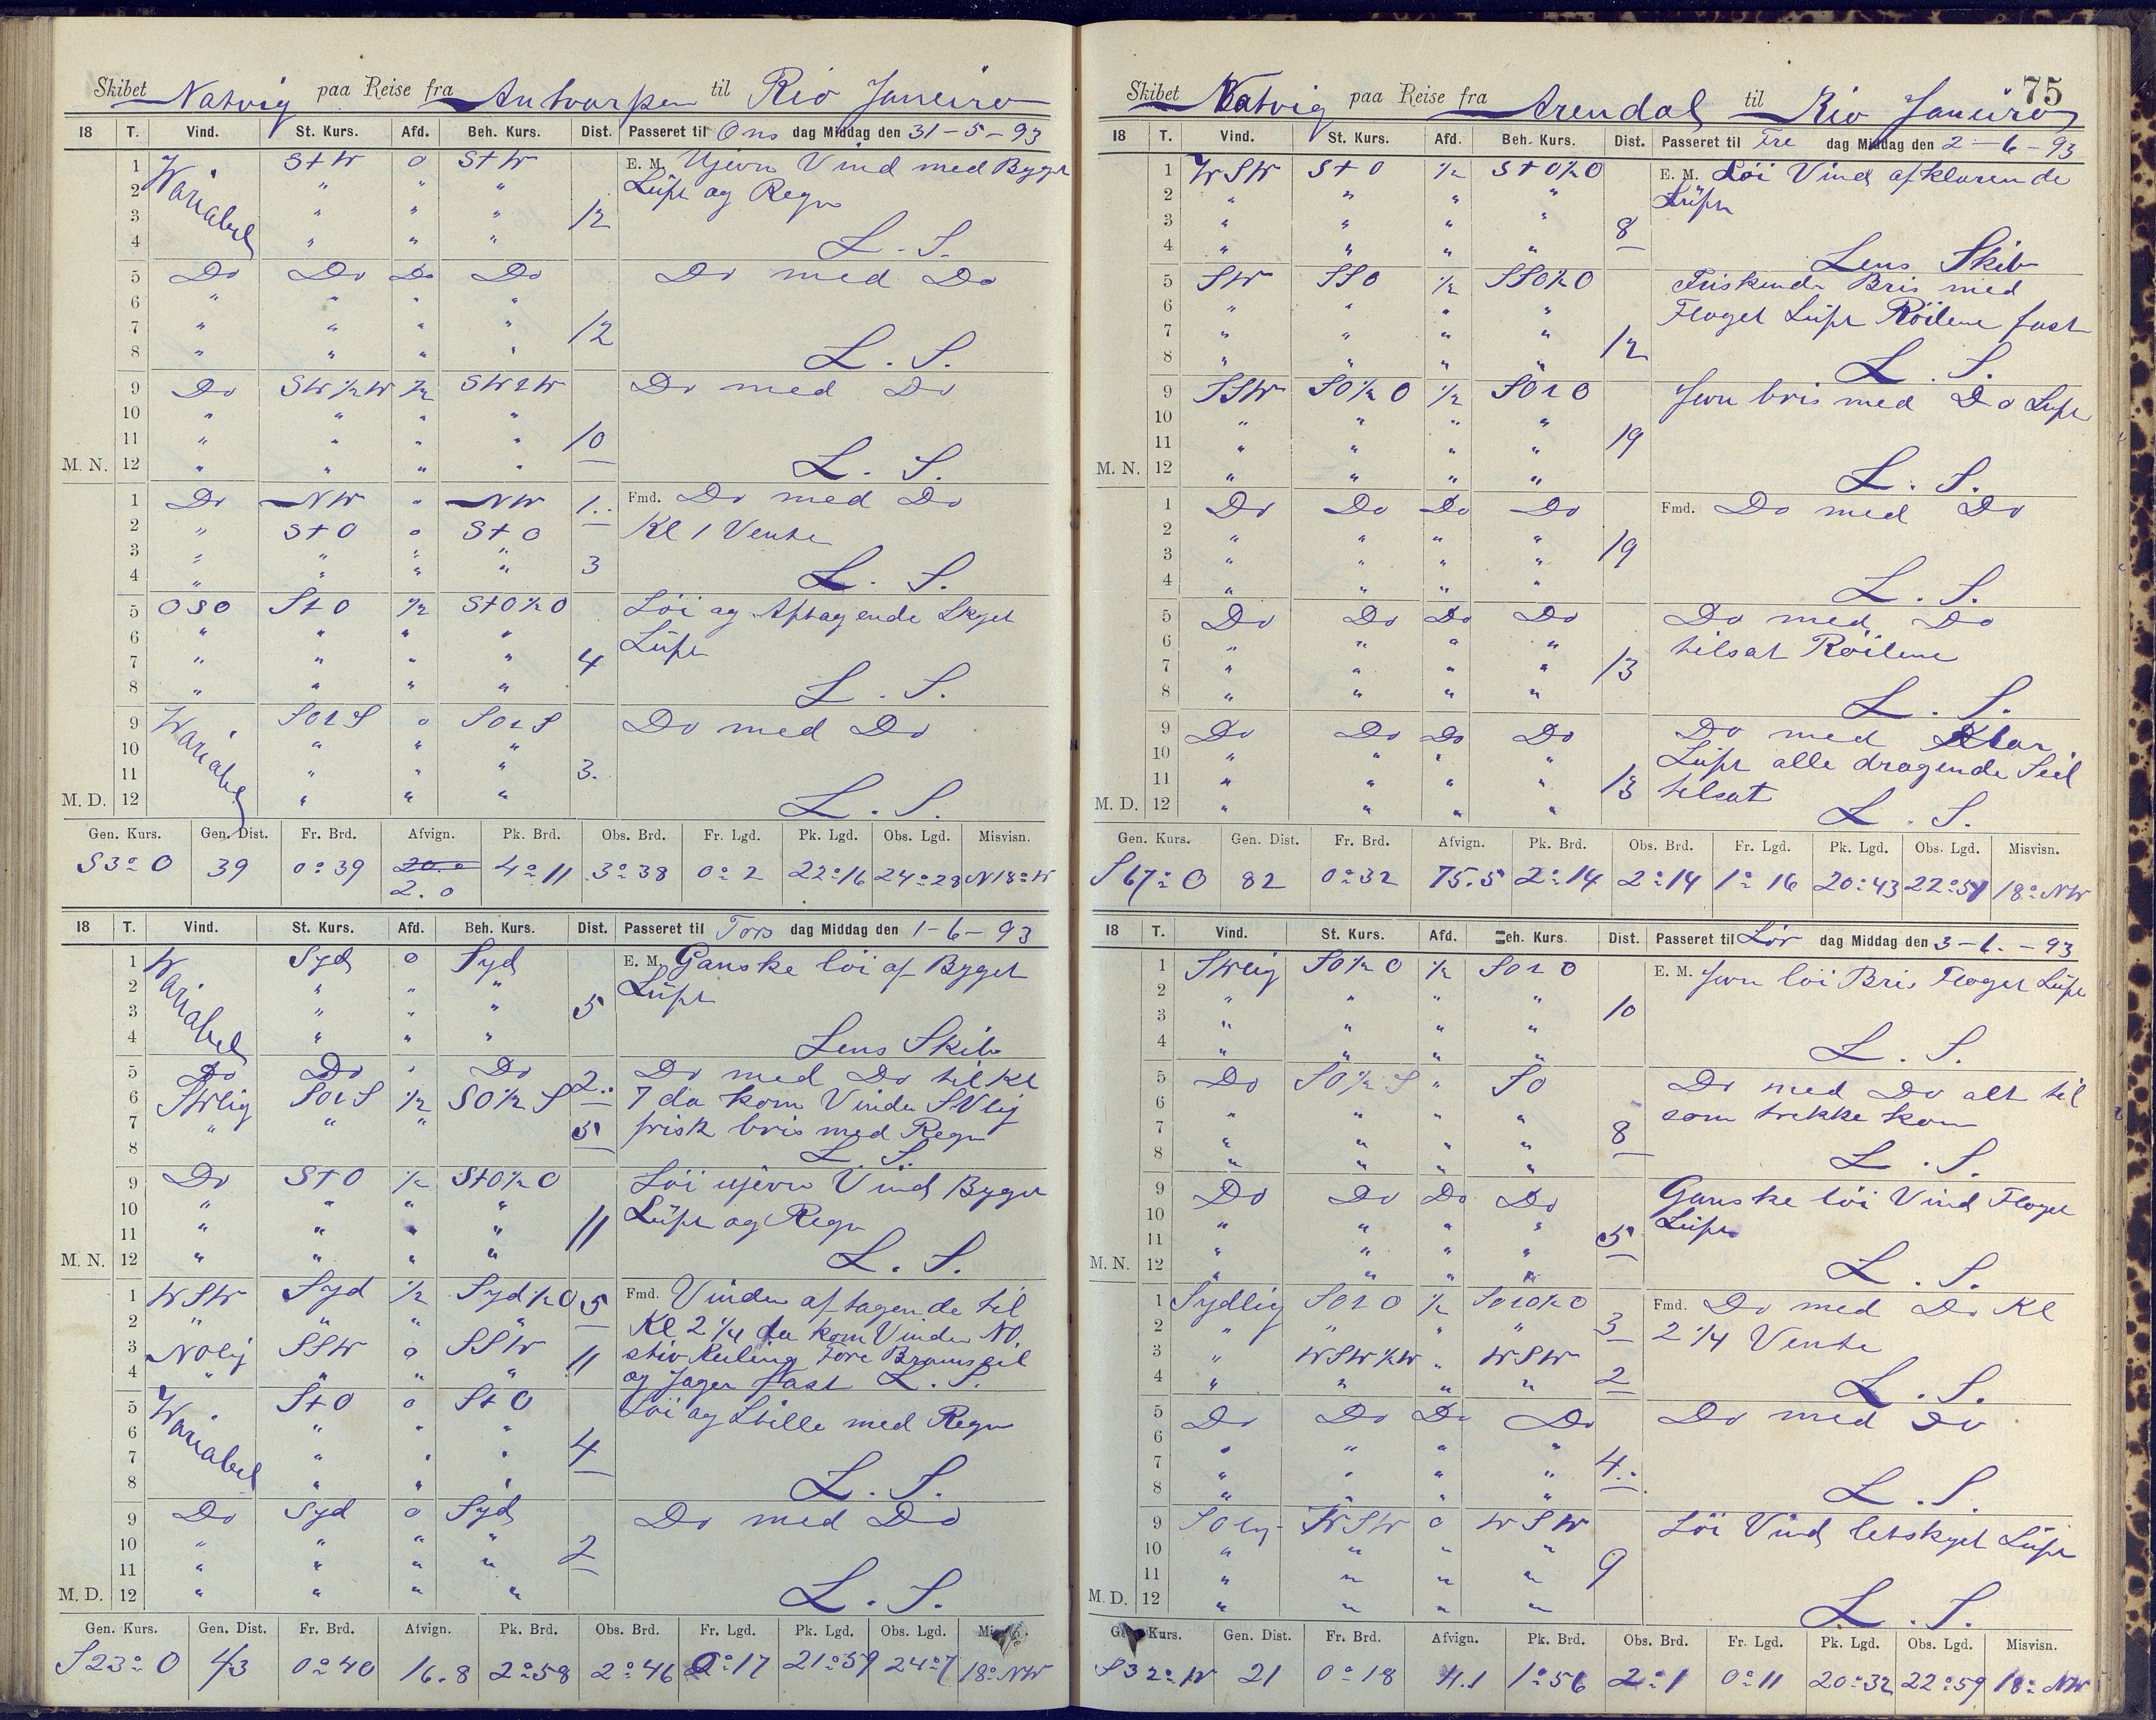 Skibet Natvig paa Reise fra Antvarpen til Rio Janeiro
18 T. Vind. St. Kurs. Afd. Beh. Kurs. Dist. Passeret til Ons dag Middag den 31-5-93
1 Variabel StW 0 StW E. M. Ujevn Vind med Byget
2 " " " Luft og Regn
3 " " " 12
4 " " " L. S.
5 Do Do Do Do Do med Do
6 " " " "
7 " " " " 12
8 " " " " L. S.
9 Do SW½W ½ SWtW Do med Do
10 " " " "
11 " " " " 10
M. N. 12 " " " " L. S.
1 Do NW " NW 1.. Fmd. Do med Do
2 " StO 0 StO Kl 1 Vente
3 " " " " 3
4 " " " " L. S.
5 OSO StO ½ StO½O Löi og Aftagende Skyet
6 " " " " Luft
7 " " " " 4
8 " " " " L. S.
9 Variabel SOtS 0 SOtS Do med Do
10 " " "
11 " " " 3.
M. D. 12 " " " L. S.
Gen. Kurs. Gen. Dist. Fr. Brd. Afvign. Pk. Brd. Obs. Brd. Fr. Lgd. Pk. Lgd. Obs. Lgd. Misvisn.
S3°O 39 0°39 20.0 2.0 4°11 3°38 0°2 22°16 24°28 N18°W
18 T. Vind. St. Kurs. Afd. Beh. Kurs. Dist. Passeret til Tors dag Middag den 1-6-93
1 Variabel Syd 0 Syd E. M. Ganske löi af Byget
2 " " " Luft
3 " " " 5
4 " " " Lens Skib
5 Do Do " Do 2.. Do med Do til Kl
6 SWlig SOtS ½ SO½S 7 da kom Vinden SVlig
7 " " " 5 frisk bris med Regn
8 L. S.
9 Do StO ½ StO½O Löi ujevn Vind Byget
10 " " " " Luft og Regn
11 " " " " 11
M. N. 12 " " " " L. S.
1 WSW Syd ½ Syd½O 5 Fmd. Vinden aftagende til
2 " " " " Kl 2¼ da kom Vinden NO
3 NOlig SSW 0 SSW 11 stiv Kuling Fore Bramseil
4 " " " " og Jager fast L. S.
5 Variabel StO 0 StO Löi og Stille med Regn
6 " " "
7 " " " 4
8 " " " L. S.
9 Do Syd 0 Syd Do med Do
10 " " " " 2
11 " " " "
M. D. 12 " " " " L. S.
Gen. Kurs. Gen. Dist. Fr. Brd. Afvign. Pk. Brd. Obs. Brd. Fr. Lgd. Pk. Lgd. Obs. Lgd.
S23°O 43 0°40 16.8 2°58 2°46 0°17 21°59 24°7 18°NW
75
Skibet Natvig paa Reise fra Arendal til Rio Janeiro
18 T. Vind. St. Kurs. Afd. Beh. Kurs. Dist. Passeret til Fre dag Middag den 2-6-93
1 WSW StO ½ StO½O E. M. Löi Vind afklarende
2 " " " " Luft
3 " " " " 8
4 " " " " Lens Skib
5 SW SSO ½ SSO½O Friskende Bris med
6 " " " " Floget Luft Röilene fast
7 " " " " 12
8 " " " " L. S.
9 SSW SO½O ½ SOtO Jevn bris med Do Luft
10 " " " "
11 " " " " 19
M. N. 12 " " " " L. S.
1 Do Do Do Do Fmd. Do med Do
2 " " " "
3 " " " " 19
4 " " " " L. S.
5 Do Do Do Do Do med Do
6 " " " " tilsat Röilene
7 " " " " 13
8 " " " " L. S.
9 Do Do Do Do Do med Klar
10 " " " " Luft alle dragende Seil
11 " " " " 13 tilsat
M. D. 12 " " " " L. S.
Gen. Kurs. Gen. Dist. Fr. Brd. Afvign. Pk. Brd. Obs. Brd. Fr. Lgd. Pk. Lgd. Obs. Lgd. Misvisn.
S67°O 82 0°32 75.5 2°14 2°14 1°16 20°43 22°51 18°NW
18 T. Vind. St. Kurs. Afd. Beh. Kurs. Dist. Passeret til Lör dag Middag den 3-6-93
1 SWlig SO½O ½ SOtO E. M. Jevn löi Bris Floget Luft
2 " " " "
3 " " " " 10
4 " " " " L. S.
5 Do SO½S " SO Do med Do alt til
6 " " " " som trekke kom
7 " " " " 8
8 " " " " L. S.
9 Do Do Do Do Ganske löi Vind Floget
10 " " " " Luft
11 " " " " 5
M. N. 12 " " " " L. S.
1 Sydlig SOtO ½ SOtO½O Fmd. Do med Do Kl
2 " " " " 3 2¼ Vente
3 " WSW½W " WSW
4 " " " " 2 L. S.
5 Do Do Do Do Do med Do
6 " " " "
7 " " " " 4..
8 " " " " L. S.
9 SOlig WSW 0 WSW Löi Vind letskyet Luft
10 " " " "
11 " " " " 9
M. D. 12 " " " " L. S.
Kurs. Gen. Dist. Fr. Brd. Afvign. Pk. Brd. Obs. Brd. Fr. Lgd. Pk. Lgd. Obs. Lgd. Misvisn.
S32°W 21 0°18 11.1 1°56 2°1 0°11 20°32 22°59 18°NW